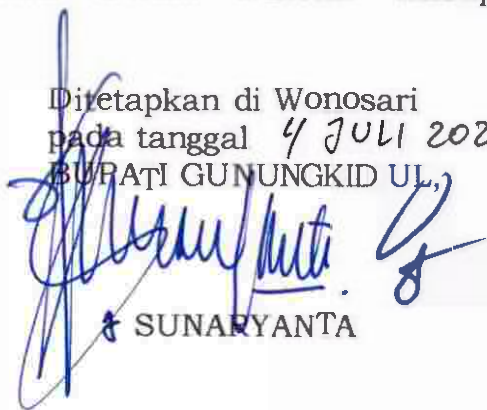 Ditetapkan di Wonosari
pada tanggal 4 JULI 202
BUPATI GUNUNGKIDUL,
SUNARYANTA